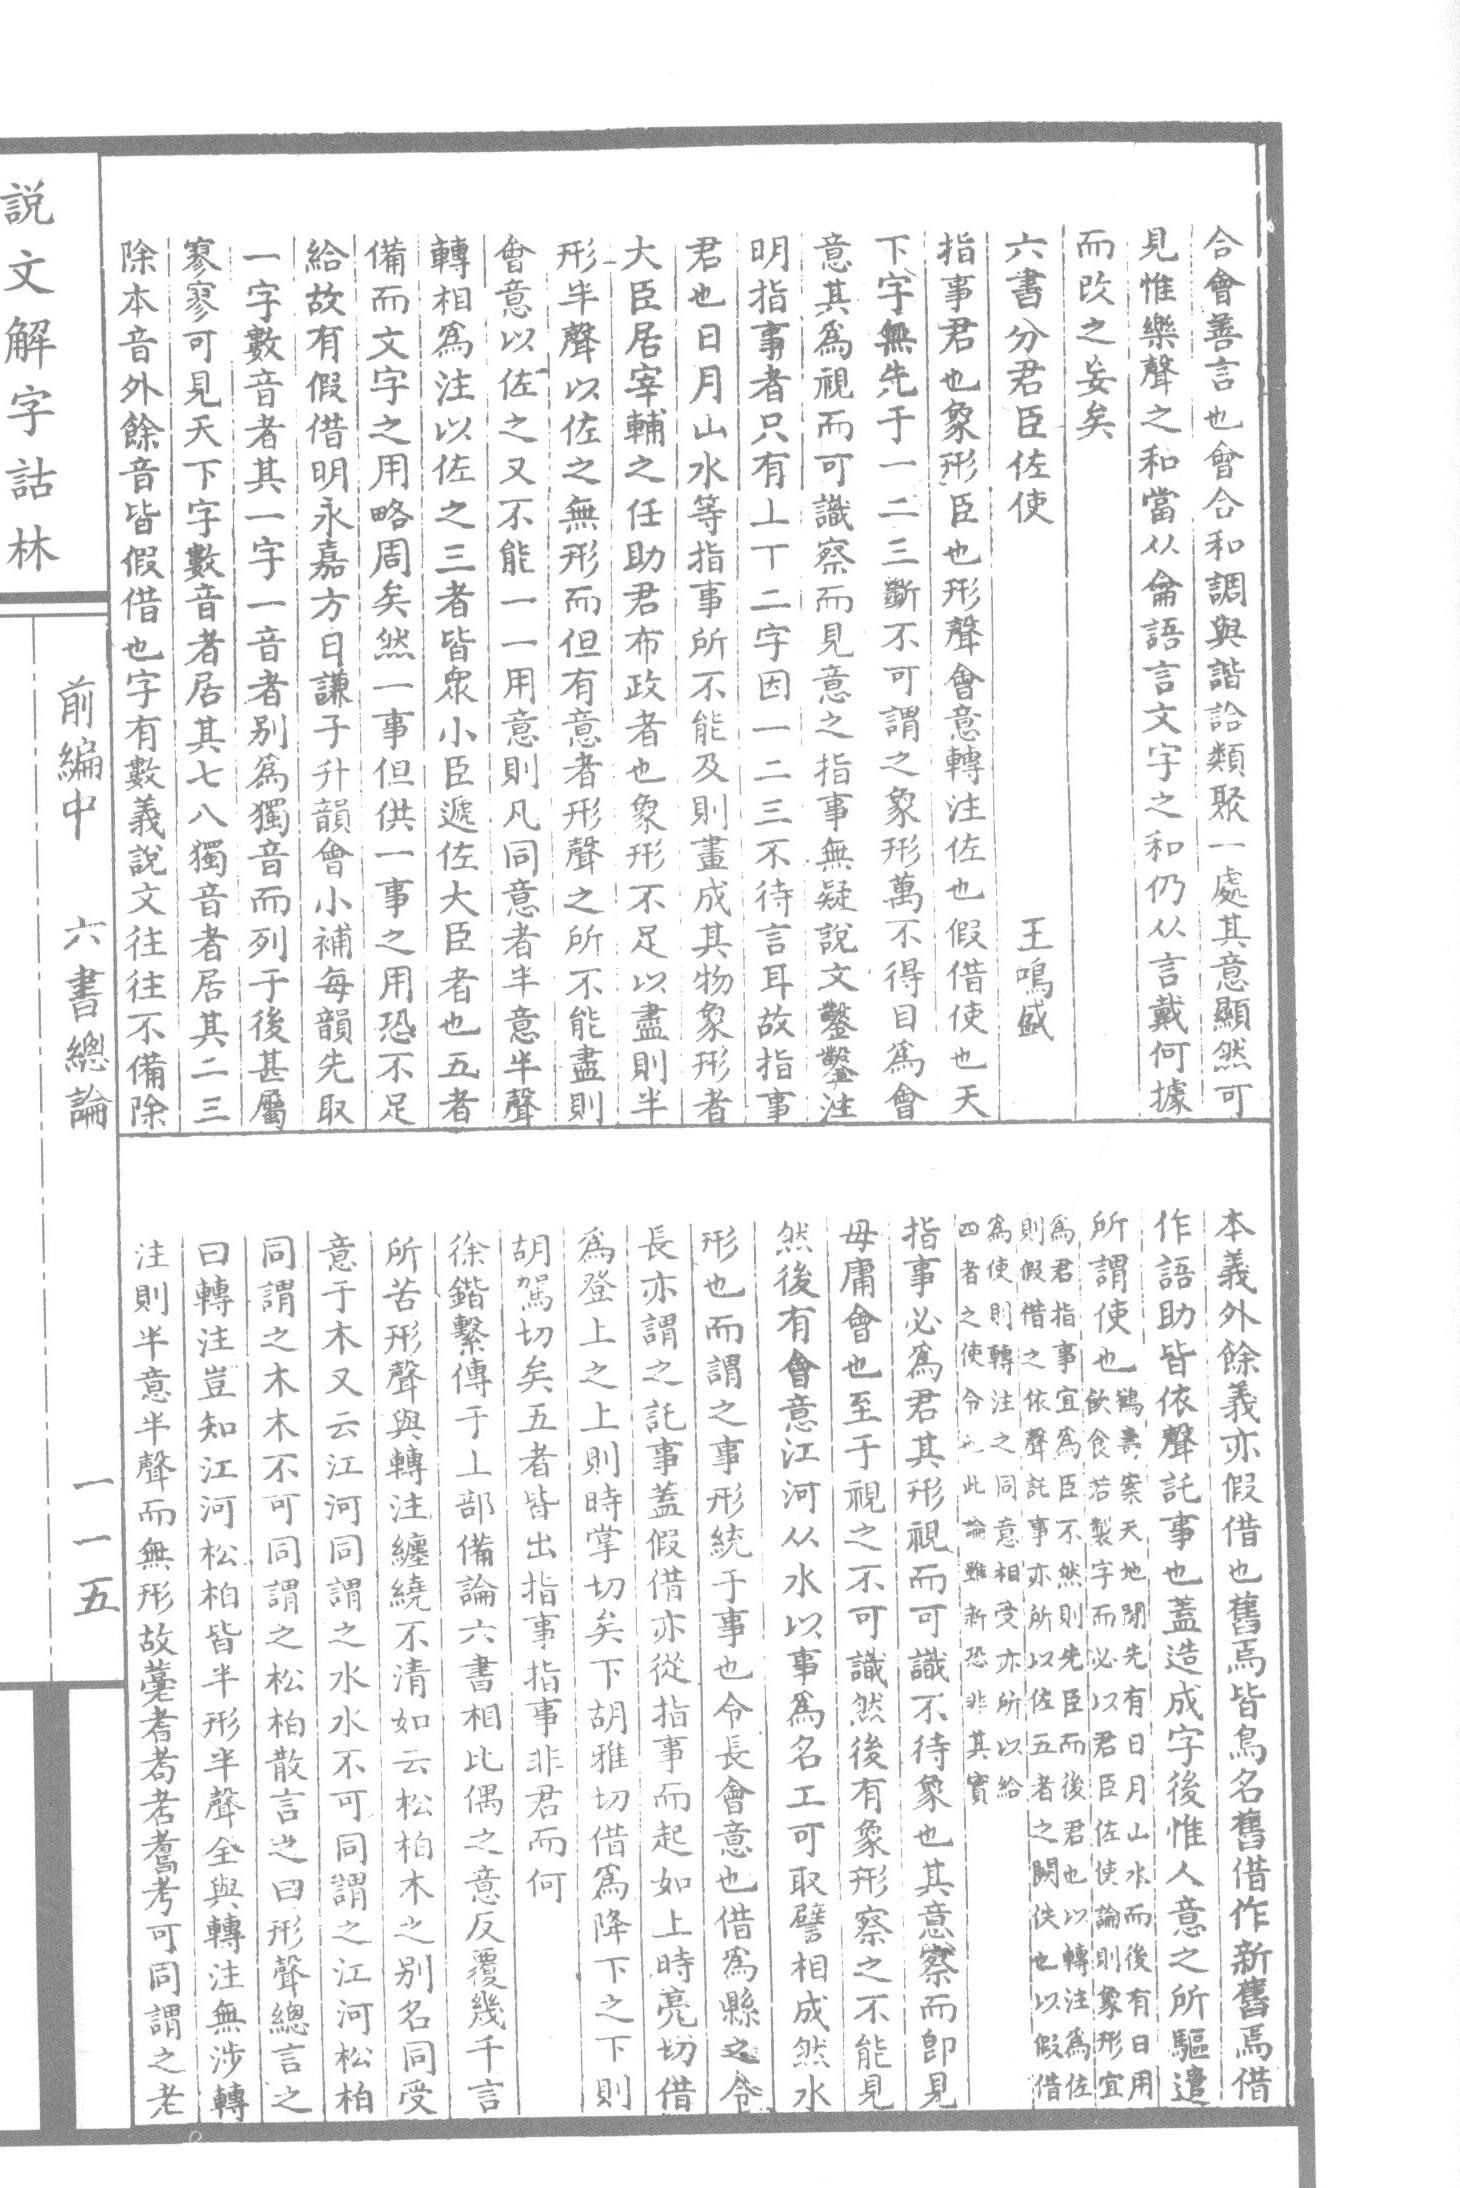 合會善言也會合和調與諧詥類聚一處其意顯然可
見惟樂聲之和當从龠語言文字之和仍从言戴何據
而改之妄矣
六書分君臣佐使　王鳴盛
指事君也象形臣也形聲會意轉注佐也假借使也天
下字無先于一二三斷不可謂之象形萬不得目為會
意其為視而可識察而見意之指事無疑說文鑿鑿注
明指事者只有丄丅二字因一二三不待言耳故指事
君也日月山水等指事所不能及則畫成其物象形者
大臣居宰輔之任助君布政者也象形不足以盡則半
形半聲以佐之無形而但有意者形聲之所不能盡則
會意以佐之又不能一一用意則凡同意者半意半聲
轉相為注以佐之三者皆眾小臣遞佐大臣者也五者
備而文字之用略周矣然一事但供一事之用恐不足
給故有假借明永嘉方日謙子升韻會小補每韻先取
一字數音者其一字一音者别為獨音而列于後甚屬
寥寥可見天下字數音者居其七八獨音者居其二三
除本音外餘音皆假借也字有數義說文往往不備除
本義外餘義亦假借也舊焉皆鳥名舊借作新舊焉借
作語助皆依聲託事也蓋造成字後惟人意之所驅遣
所謂使也
鶴壽案天地閒先有日月山水而後有日用
飲食若製字而必以君臣佐使論則象形宜
為君指事宜為臣不然則先臣而後君也以轉注為佐
則假借之依聲託事亦所以佐五者之闕佚也以假借
為使則轉注之同意相受亦所以給
四者之使令也此論雖新恐非其實
指事必為君其形視而可識不待象也其意察而卽見
毋庸會也至于視之不可識然後有象形察之不能見
然後有會意江河从水以事為名工可取譬相成然水
形也而謂之事形統于事也令長會意也借為縣之令
長亦謂之託事蓋假借亦從指事而起如上時亮切借
為登上之上則時掌切矣下胡雅切借為降下之下則
胡駕切矣五者皆出指事指事非君而何
徐鍇繫傳于丄部備論六書相比偶之意反覆幾千言
所苦形聲與轉注纏繞不清如云松柏木之别名同受
意于木又云江河同謂之水水不可同謂之江河松柏
同謂之木木不可同謂之松柏散言之曰形聲總言之
曰轉注豈知江河松柏皆半形半聲全與轉注無涉轉
注則半意半聲而無形故耋耆耇耉耄考可同謂之老
說文解字詁林
前編中　六書總論　一一五